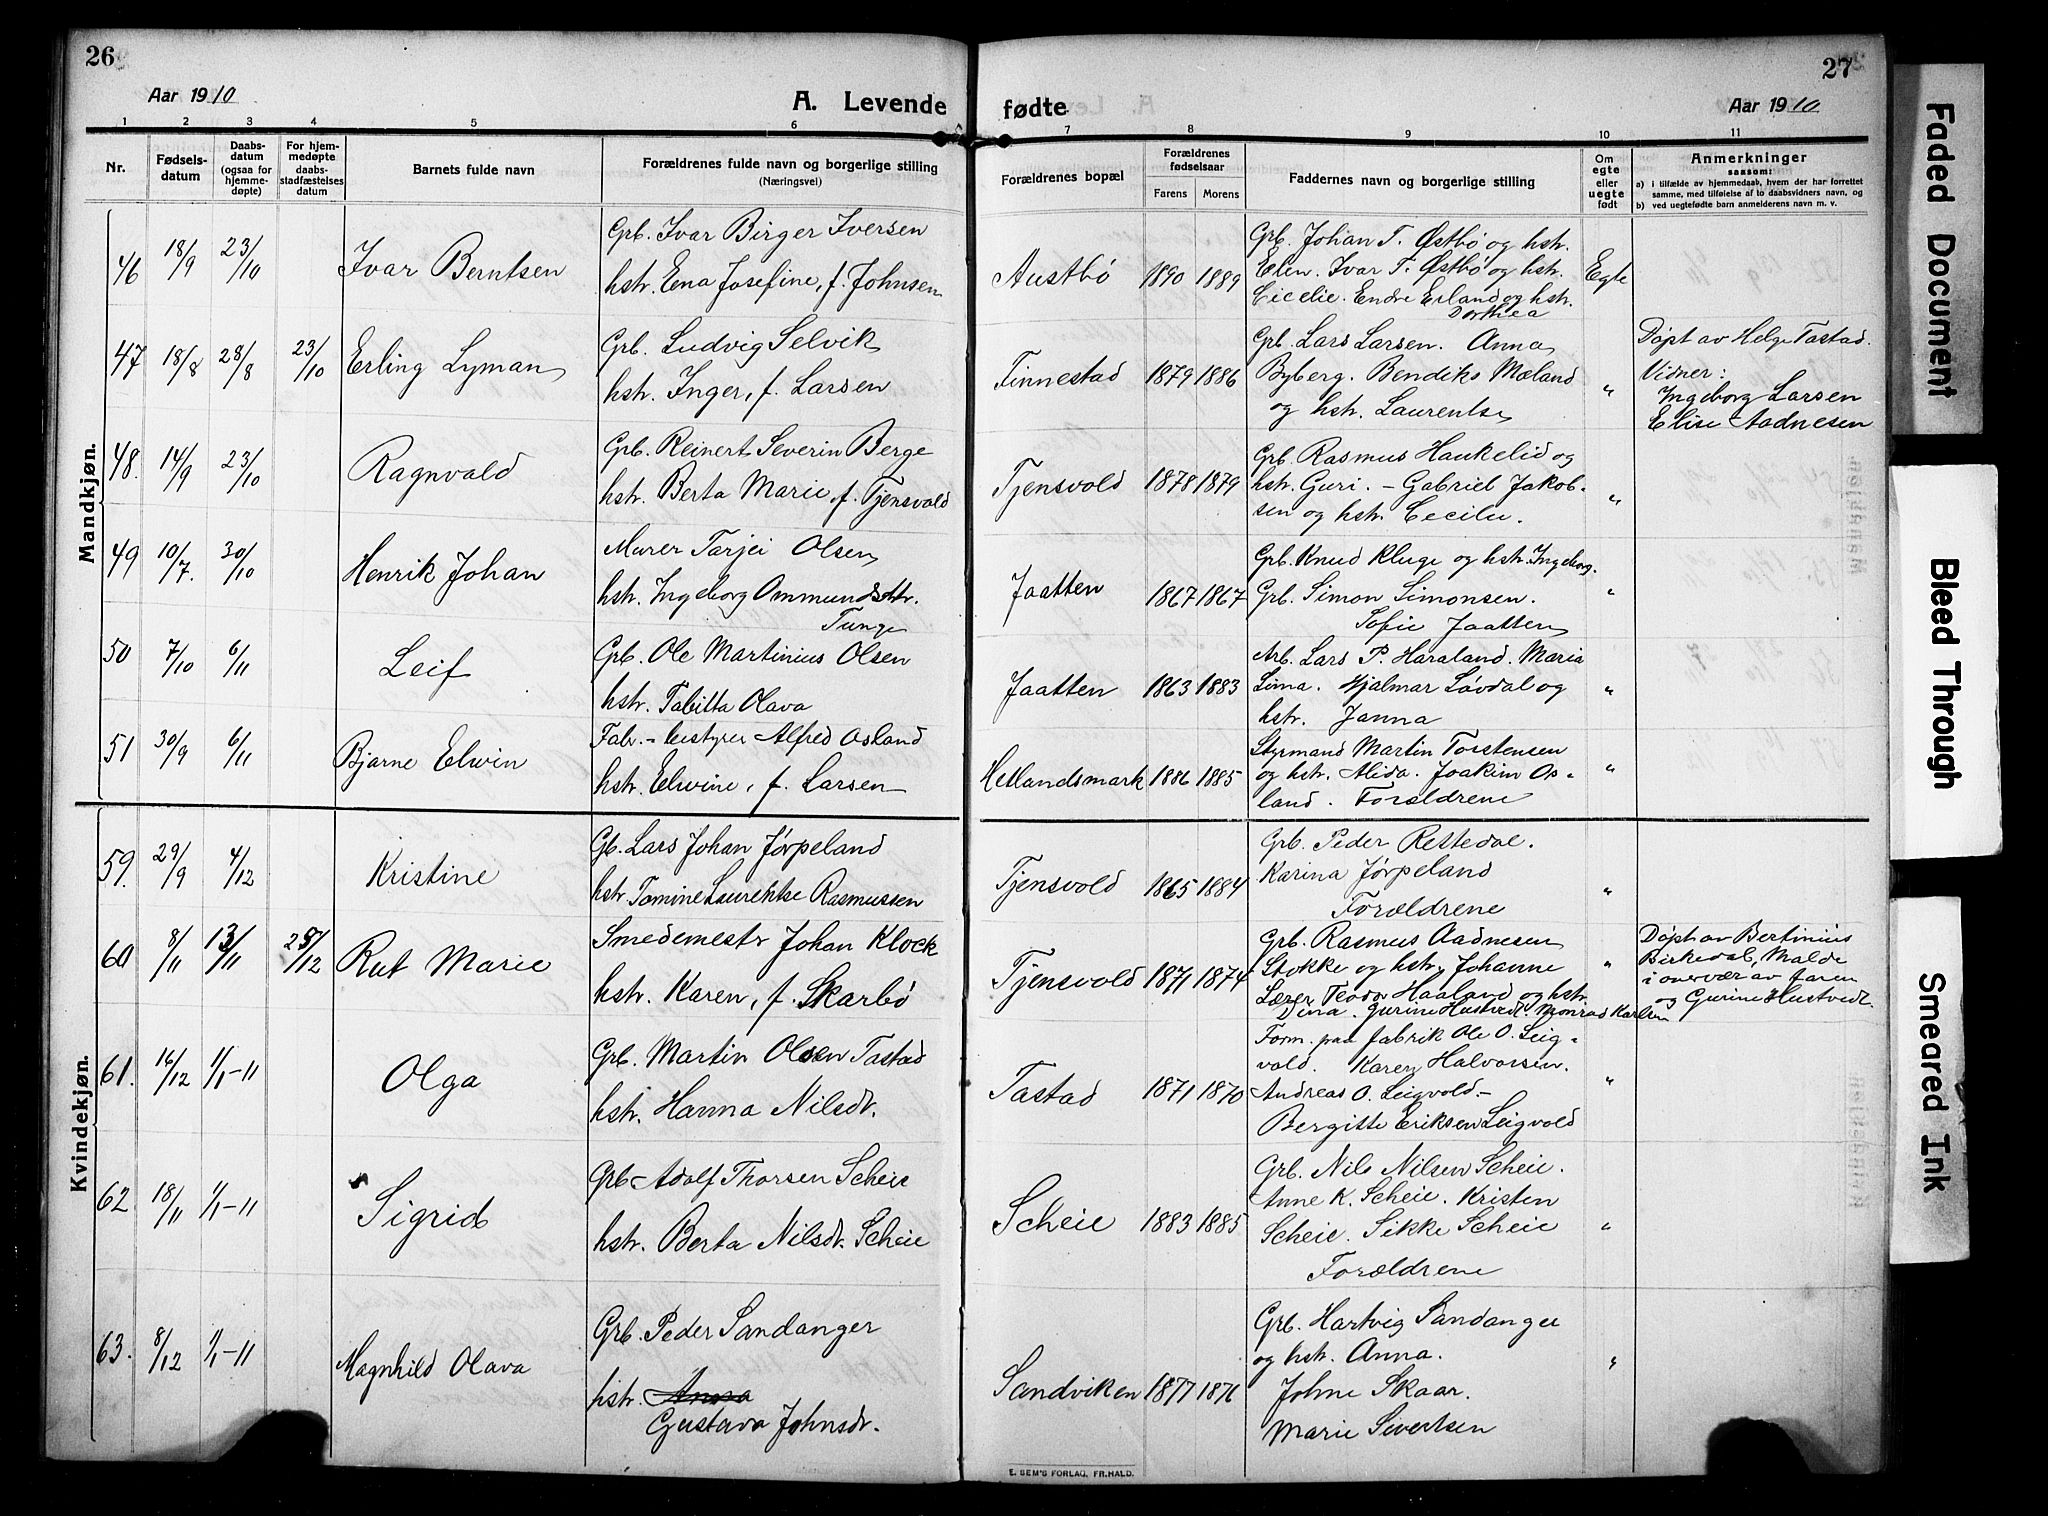 26
Aar 1910
A. Levende
1 2 3 4 5 6
Nr.
Fødsels-
datum
Daabs-
datum
(ogsaa for
hjemme-
døpte)
For hjem-
medøpte
daabs-
stadfæstelses
datum
Barnets fulde navn
Forældrenes fulde navn og borgerlige stilling
(Næringsvei)
Mandkjøn.
46 18/9 23/10 Ivar Berntsen
Grb. Ivar Birger Iversen
hstr. Ena Josefine, f. Johnsen
47 18/8 28/8 23/10 Erling Lyman
Grb. Ludvig Selvik
hstr. Inger, f. Larsen
48. 14/9 23/10 Ragnvald
Grb. Reinert Severin Berge
hstr. Berta Marie, f. Tjensvold
49 10/7. 30/10 Henrik Johan
Murer Tarjei Olsen
hstr. Ingeborg Ommundsdtr.
Tunge
50 7/10 6/11 Leif
Grb. Ole Martinius Olsen
hstr. Tabitta Olava
51 30/9 6/11 Bjarne Elwin
Fabr.-bestyrer Alfred Osland
hstr. Elwine, f. Larsen
Kvindekjøn.
59. 29/9 4/12 Kristine
Gb. Lars Johan Jørpeland
hstr. Tomine Laurentse Rasmussen
60 8/11 13/11 /12 Rut Marie
Smedemestr Johan Klock
hstr. Karen, f. Skarbø
61. 16/12 1/1-11 Olga
Grb. Martin Olsen Tastad
hstr. Hanna Nilsdr.
62 18/11 1/1-11 Sigrid
Grb Adolf Thorsen Scheie
hstr. Berta Nilsdr. Scheie
63. 8/12 1/1-11 Magnhild Olava
Grb. Peder Sandanger
hstr. Anna
Gustava Johnsdr.
27
fødte
Aar 1910
7 8 9 10 11
Forældrenes bopæl
Forældrenes
fødselsaar
Farens Morens
Faddernes navn og borgerlige stilling
Om
egte
eller
uegte
født
Anmerkninger
saasom:
a) i tilfælde av hjemmedaab, hvem der har forrettet
samme, med tilføielse af to daabsvidners navn, og
b) ved uegtefødte barn anmelderens navn m. v.
Austbø 1890 1889
Grb. Johan T. Østbø og hstr.
Elen. Ivar T. Østbø og hstr.
Cicelie. Endre Erland og hstr.
Dorthea
Egte
Finnestad 1879 1886
Grb. Lars Larsen. Anna
Byberg. Bendiks Mæland
og hstr. Laurentse
"
Døpt av Helge Tastad.
Vidner:
Ingeborg Larsen
Elise Aadnesen
Tjensvold 1878 1879
Grb. Rasmus Haukelid og
hstr. Guri. - Gabriel Jakob-
sen og hstr. Cecilie.
"
Jaatten 1867 1867
Grb. Knud Kluge og hstr. Ingeborg.
Grb. Simon Simonsen.
Sofie Jaatten
"
Jaatten 1863 1883
Arb. Lars P. Haraland. Maria
Lima. Hjalmar Løvdal og
hstr. Janna
"
Hetlandsmark 1886 1885
Styrmand Martin Torstensen
og hstr. Alida. Joakim Os-
land. Forældrene
"
Tjensvold 1865 1884
Grb. Peder Rettedal.
Karina Jørpeland
Forældrene
"
Tjensvold 1871 1874
Grb. Rasmus Aadnesen
Stokke og hstr. Johanne
Lærer Teodor Haaland og hstr
Dina. Gurine Hustvedt. Monrad Karlsen
"
Døpt av Bertinius
Birkedal, Malde
i overvær av faren
og Gurine Hustvedt.
Tastad 1871 1870
Form. paa fabrik Ole O. Leig-
vold. Karen Halvorsen.
Andreas O. Leigvold.-
Bergitte Eriksen Leigvold
"
Scheie 1883 1885
Grb. Nils Nilsen Scheie.
Anne K. Scheie. Kristen
Scheie. Sikke Scheie
Forældrene
"
Sandviken 1877 1876
Grb. Hartvig Sandanger
og hstr. Anna.
Johne Skaar.
Marie Sivertsen
"
E. SEM'S FORLAG, FR.HALD.
Faded Document
Bleed Through
Smeared Ink